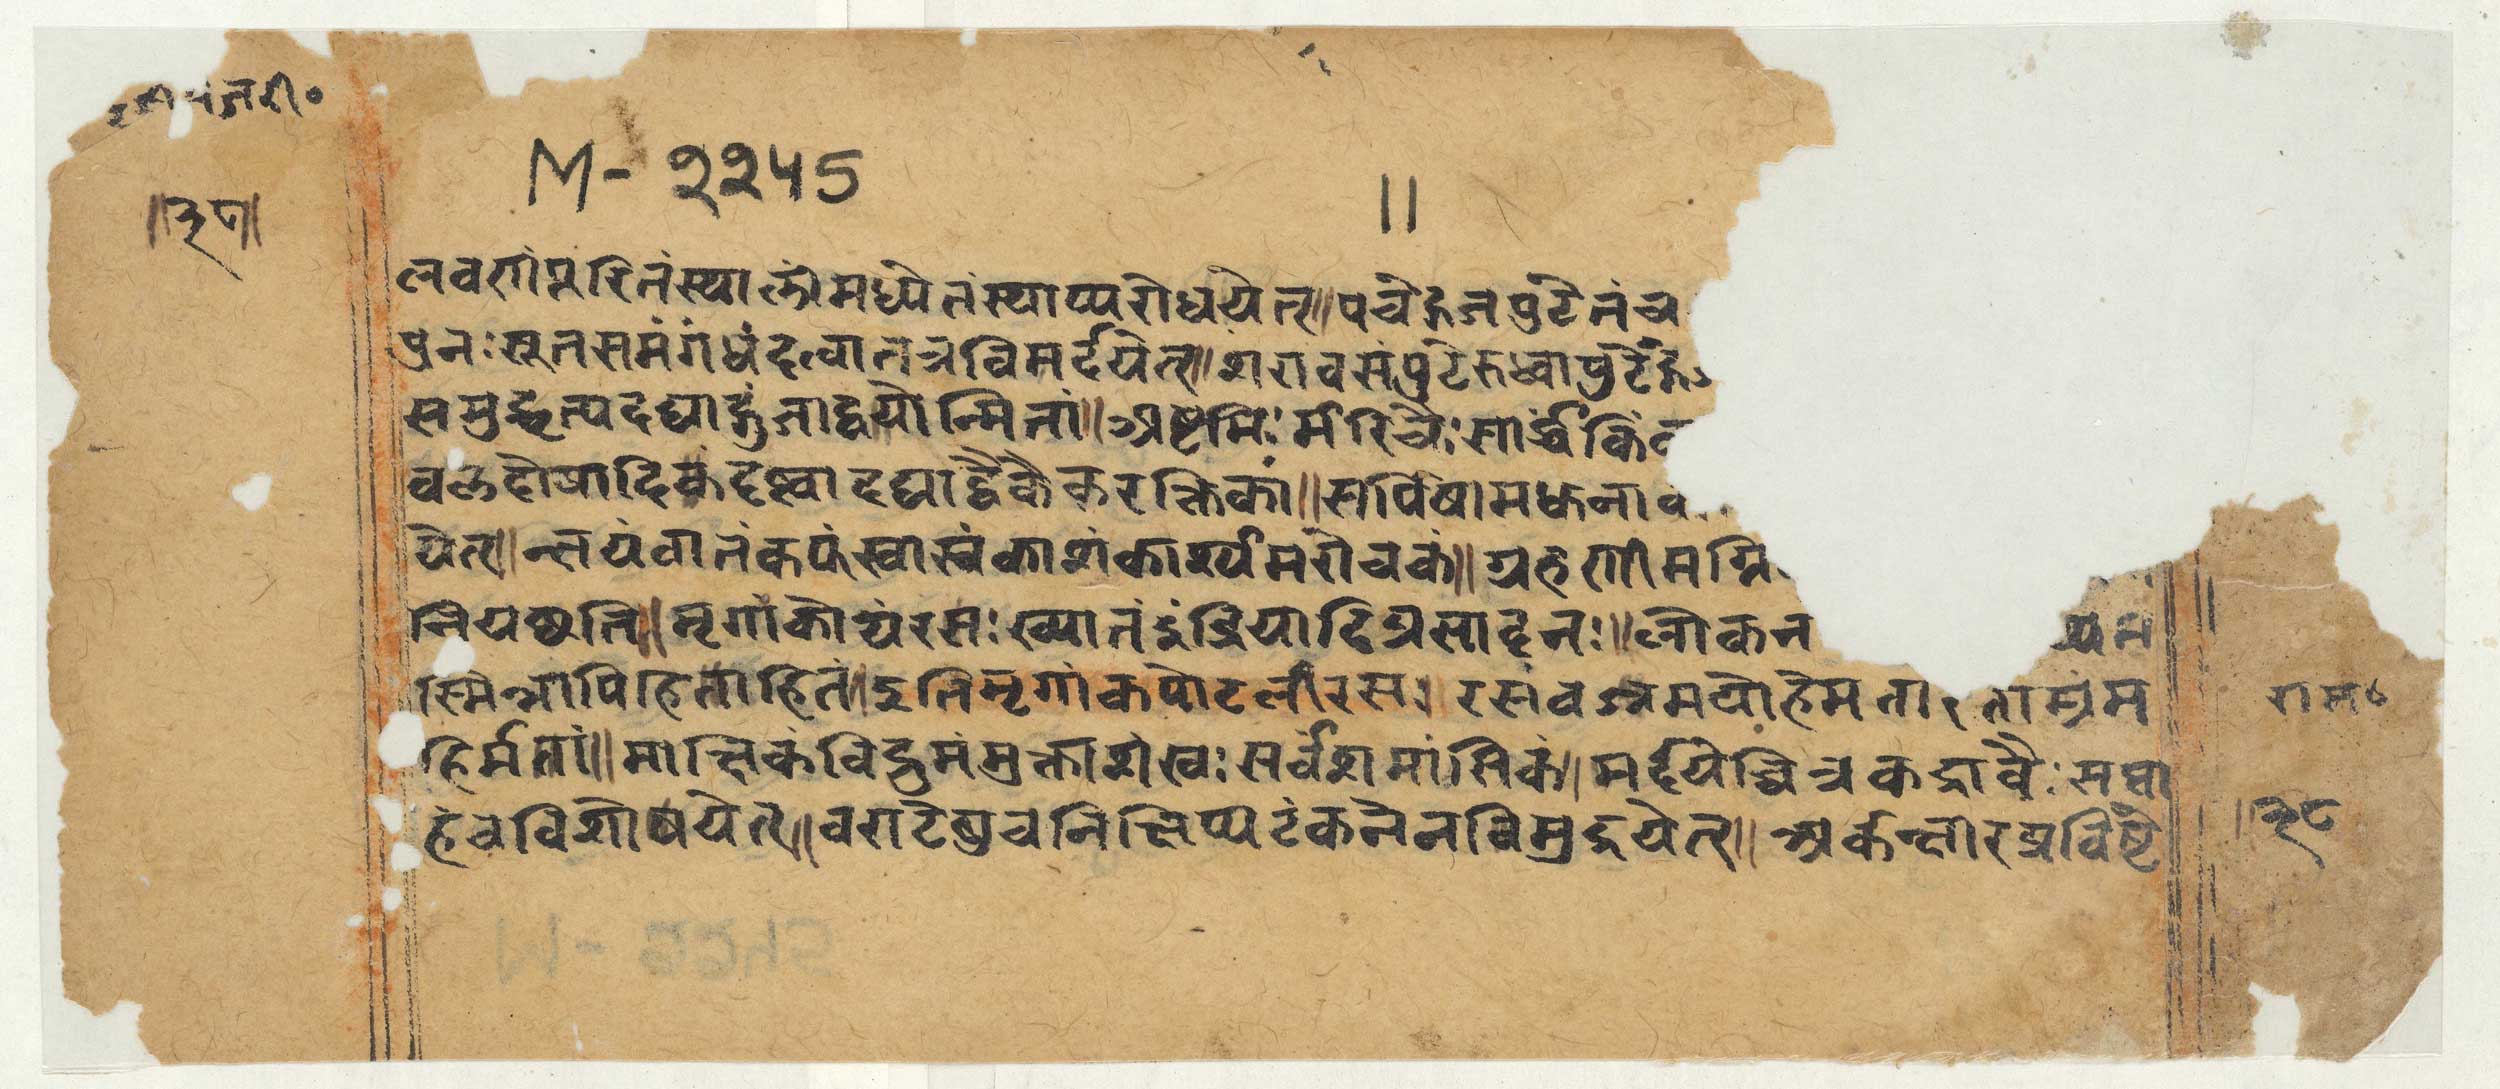 ॥३८॥
M-२२५5
॥
लवणांपूरितंस्थालीमध्येतंस्थाप्यरोधयेत्॥पचेद्गजपुटेनंच
पुनःसूतसमंगंधंदत्वातत्रविमर्दयेत्॥शरावसंपुटेरुध्वापुटे
समुद्धृत्यदद्याद्गुंजाद्वयोन्मितां॥अष्टभिःर्मरिचैःसार्द्धं
वलदोषादिकंदृष्ट्वादद्याद्वैकैकरक्तिकां॥सर्पिषामधुनाव
येत्॥क्षयंवातंकफंस्वासंकाशंकार्श्यमरोचकं॥ग्रहणीमग्नि
नियछति॥मृगांकोयंरसःख्यातंइंद्रियादिप्रसादनः॥लोकन
स्मिन्नापिहिताहितं॥इतिमृगांकपोटलीरसः॥रसंवज्रमयोहेमतारताम्रम
हिर्मतां॥माक्षिकंविद्रुमंमुक्ताशंखःसर्वशमांसिकं॥मर्दयेच्चित्रकद्रावैःसप्ता
हंचविशोषयेत्॥वराटेषुचनिक्षिप्यटंकनेनविमुद्रयेत्॥अर्कक्षीरप्रविष्टै
राम॰
॥३८